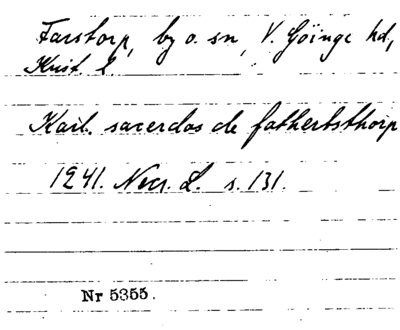 Farstorp, by o. sn, V. Göinge hd,
Krist. l.
Karl. sacerdos de fathertsthorp
1241. Necr. L. s. 131.
Nr 5355.